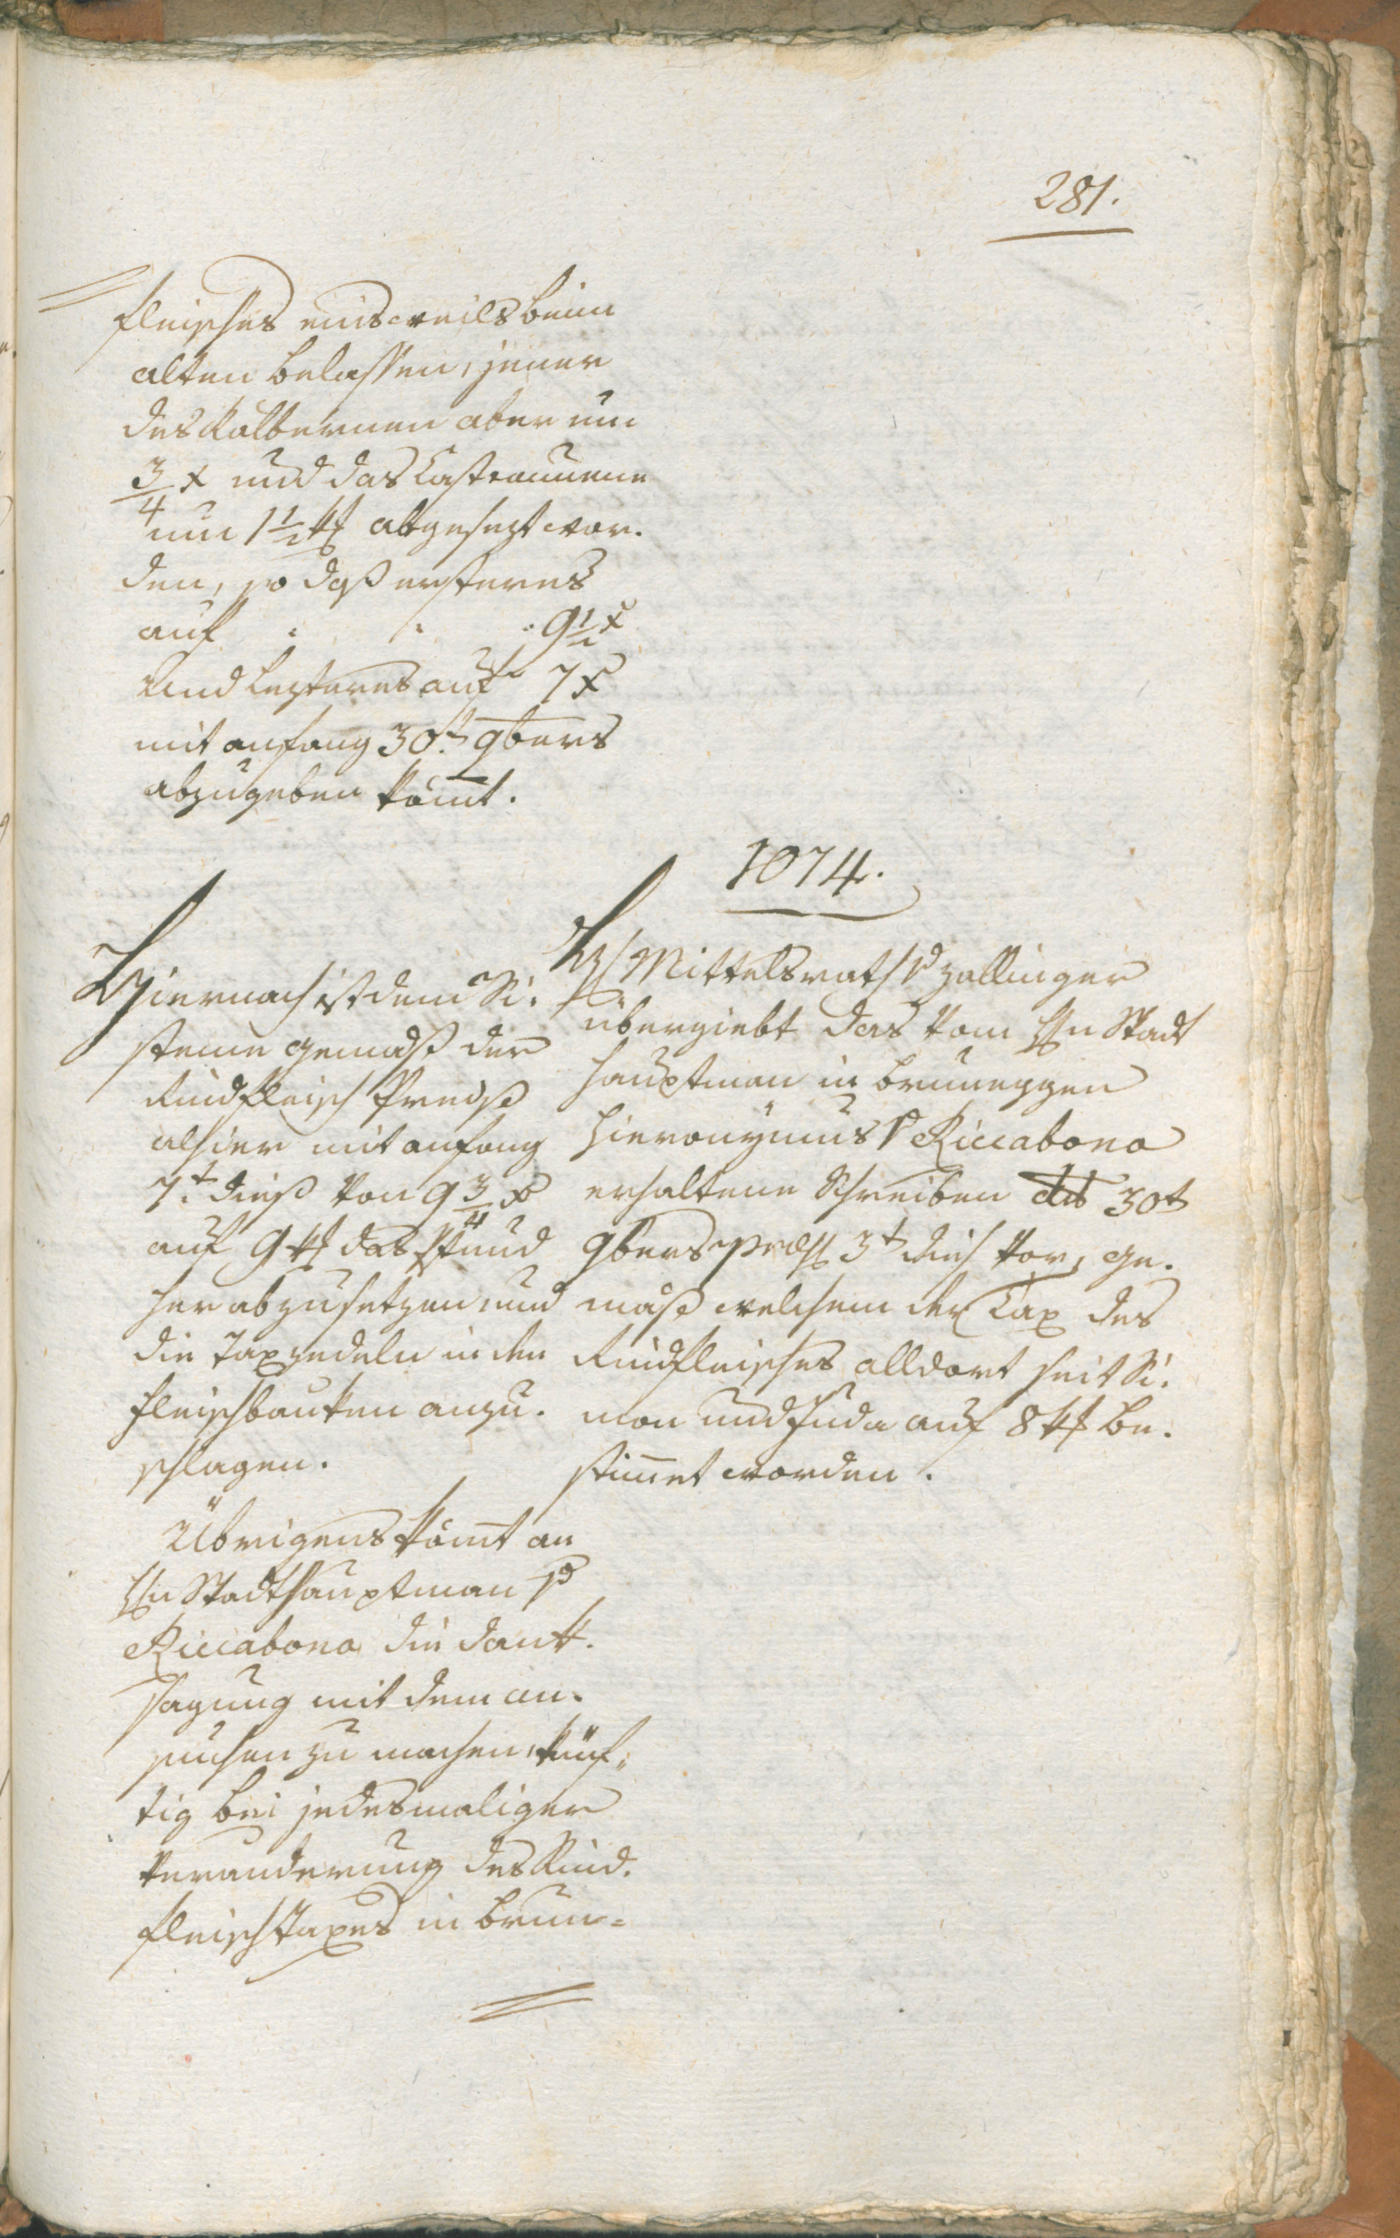 281.
fleisches einsweils beim
alten belassen, jener
des Kälbernen aber um
3/4 x und das Castraunene
um 1 1/2 xr abgesezt wor-
den, so daß ersteres
auf . . . 9 1/2 x
Und lezteres auf 7 x
mit anfang 30.t 9bers
abzugeben kömt.
1074.
Hiernach ist dem Si-
steme gemäß der
Rindfleisch Preiß
alhier mit anfang
7.t dieß von 9 3/4 x
auf 9 xr das Pfund
herabzusetzen und
die Taxzedeln in den
Fleischbanken anzu-
schlagen.
Übrigens kömt an
Hn Stadthauptman v
Riccabona die dank-
sagung mit dem an-
suchen zu machen, künf-
tig bei jedesmaliger
Veranderung des Rind-
fleisch Taxes in Brun-
H Mittelsrath v Zallinger
übergiebt das vom Hn Stadt
hauptman in Bruneggen
Hieronÿmus v Riccabona
erhaltene Schreiben dto 30t
9bers 3t dieß vor, ge-
mäß welchem der Tax des
Rindfleisches alldort seit Si-
mon und Juda auf 8 xr be-
stimet worden.